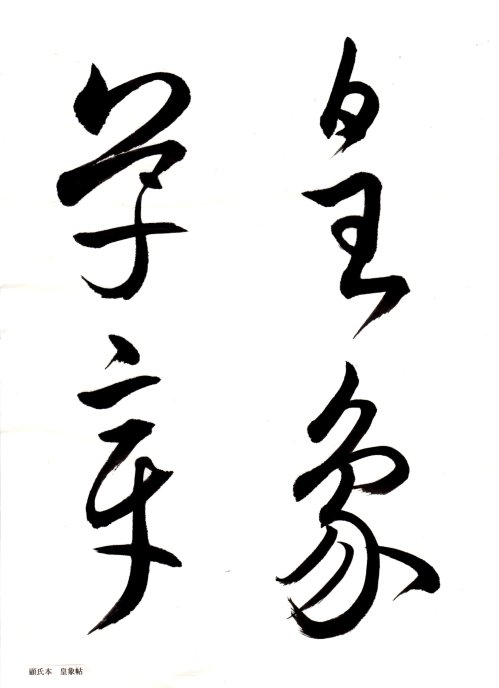 皇象
章
顧氏本 皇象帖